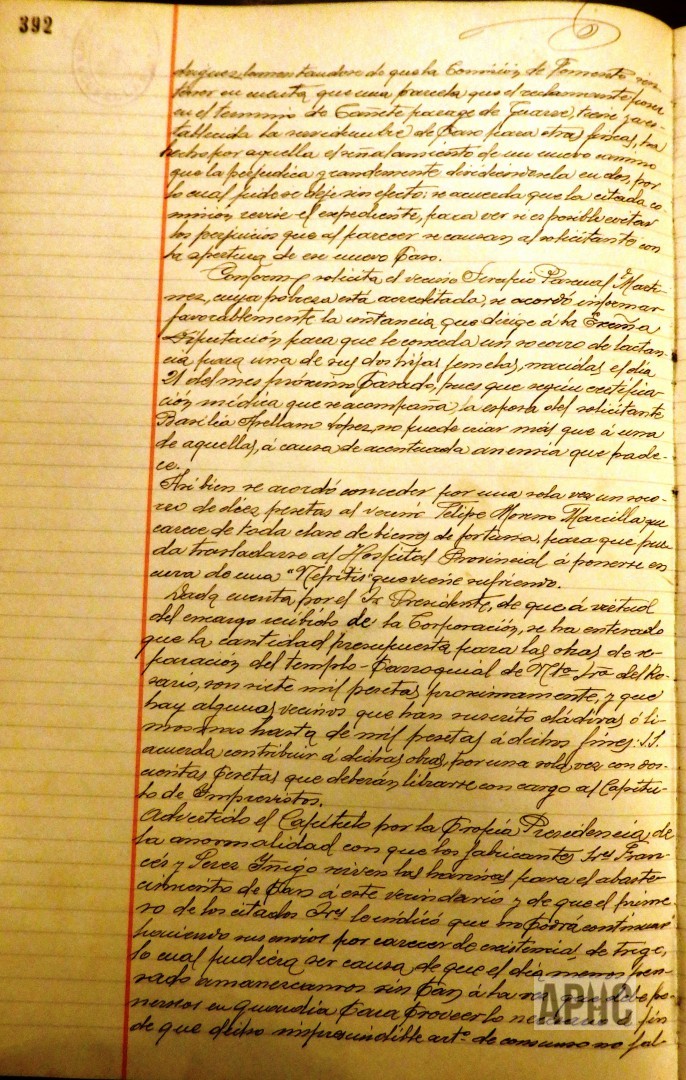 392
driguez, lamentandose de que la Comisión de Fomento sin
tener en cuenta que una parcela que el reclamante posee
en el termino de Cañete parage de Guarre, tiene ya es-
tablecida la servidumbre de Paso para otra fincas, ha
hecho por aquella el señalamiento de un nuevo camino
que la perjudica grandemente dividiendosela en dos, por
lo cual pide se deje sin efecto; se acuerda que la citada co-
misión revise el expediente, para ver si es posible evitar
los perjuicios que al parecer se causan al solicitante con
la apertura de ese nuevo Paso.
Conforme solicita el vecino Serapio Pascual Marti-
nez, cuya pobreza está acreditada, se acordó informar
favorablemente la instancia que dirige á la Excma
Diputación para que le conceda un socorro de lactan-
cia para una de sus dos hijas gemelas, nacidas el día
21 del mes próximo Pasado, pues que según certifica-
ción médica que se acompaña, la esposa del solicitante
Basilia Arellano Lopez, no puede criar más que á una
de aquellas, á causa de acentuada anemia que pade-
ce.
Asi bien se acordó conceder por una sola vez un soco-
rro de diez pesetas al vecino Felipe Moreno Marcilla que
carece de toda clase de bienes de fortuna, para que pue-
da trasladarse al Hospital Provincial á ponerse en
cura de una "Nefritis" que viene sufriendo.
Dada cuenta por el Sr Presidente, de que á virtud
del encargo recibido de la Corporación, se ha enterado
que la cantidad presupuesta para las obras de re-
paración del templo-Parroquial de Ntra Sra del Ro-
sario, son siete mil pesetas proximamente, y que
hay algunos vecinos que han suscrito dádivas ó li-
mosnas hasta de mil pesetas á dichos fines: S.S.
acuerda contribuir á dichas obras, por una sola vez con dos-
cientas Pesetas que deberán librarse con cargo al Capitu-
lo de Imprevistos.
Advertido el Capítulo por la Propia Presidencia, de
la anormalidad con que los fabricantes Srs Fran-
cés y Perez Iñigo sirven las harinas para el abaste-
cimiento de Pan á este vecindario y de que el prime-
ro de los citados Srs le indicó que no Podrá continuar
haciendo sus envios por carecer de existencia de trigo,
lo cual pudiera ser causa de que el día menos pen-
sado amanecamos sin Pan á que debe po-
nerseos en guardia Para Proveer lo necesario á fin
de que dicho imprescindible arto. de consumo no fal-
APHC